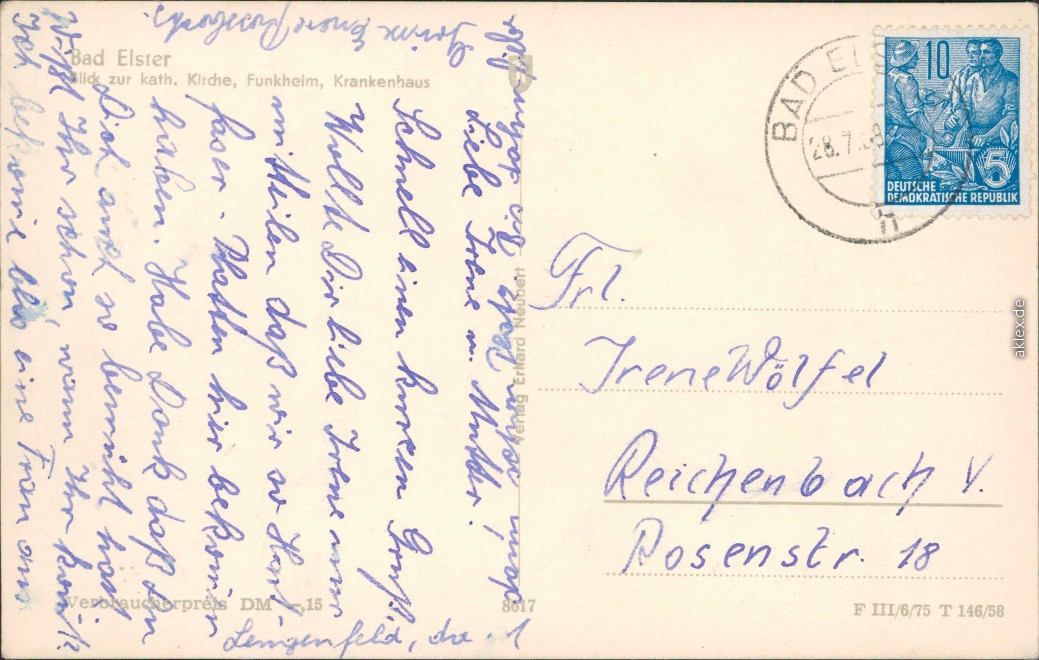 Bad Elster
Blick zur kath. Kirche, Funkheim, Krankenhaus
Liebe Irene u. Mutter!
Schnell einen kurzen Gruß!
Wollte Dir liebe Irene nur
mitteilen daß wir so Hart-
faser-Platten hier bekommen
haben. Habe Dank daß Du
Dich auch so bemüht hast
Wißt Ihr schon, wann Ihr kommt?
Ich bekomme blos eine Frau aus
Lengenfeld, da
Verlag Erhard Neubert
Verbraucherpreis DM -,15
8617
BAD ELS
28.7.
h
10
5
DEUTSCHE
DEMOKRATISCHE REPUBLIK
Frl.
Irene Wölfel
Reichenbach V.
Rosenstr. 18
F III/6/75 T 146/58
aklex.de